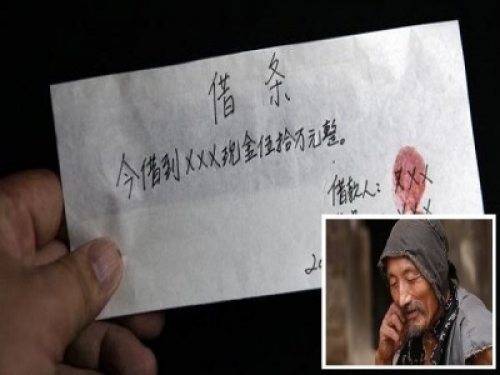 借条
今借到XXX现金伍拾万元整。
借款人：XXX
XXX
20